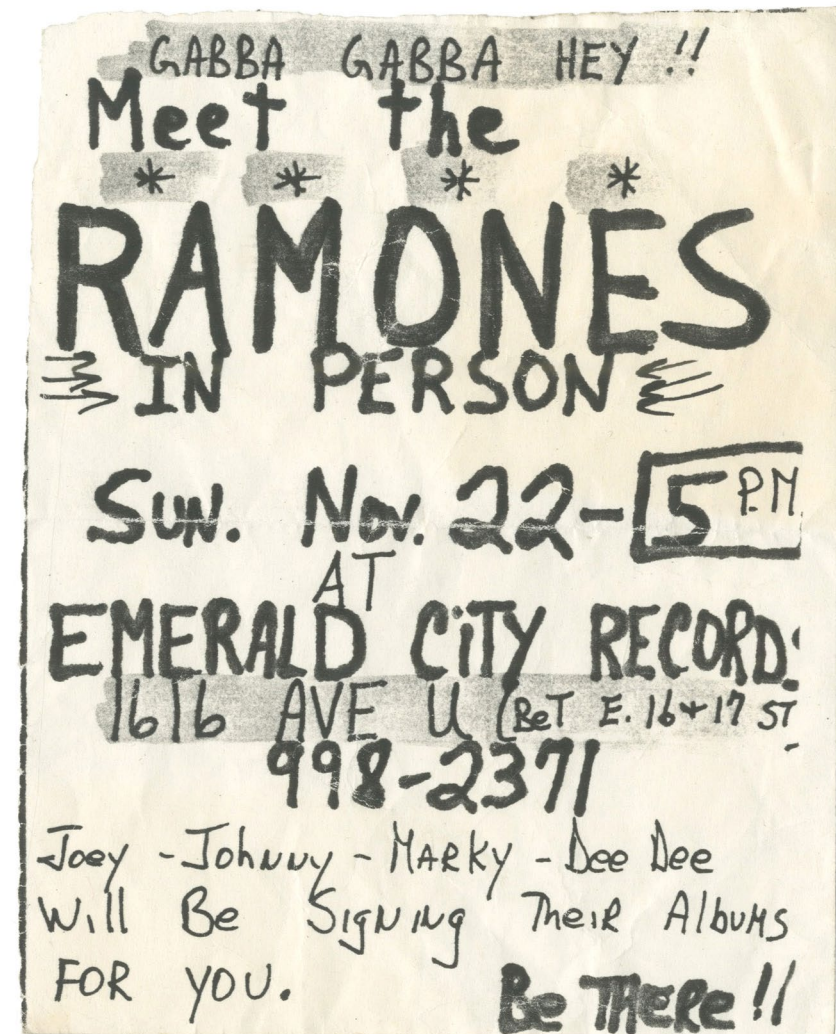 GABBA GABBA HEY !!
Meet the
* * * *
RAMONES
IN PERSON
Sun. Nov. 22 - 5 P.M.
AT
EMERALD CiTY RECORDS
1616 AVE U (BeT E. 16 + 17 ST
998-2371
Joey - Johnny - MARKY - Dee Dee
Will Be Signing Their Albums
FOR YOU.
Be THeRe !!